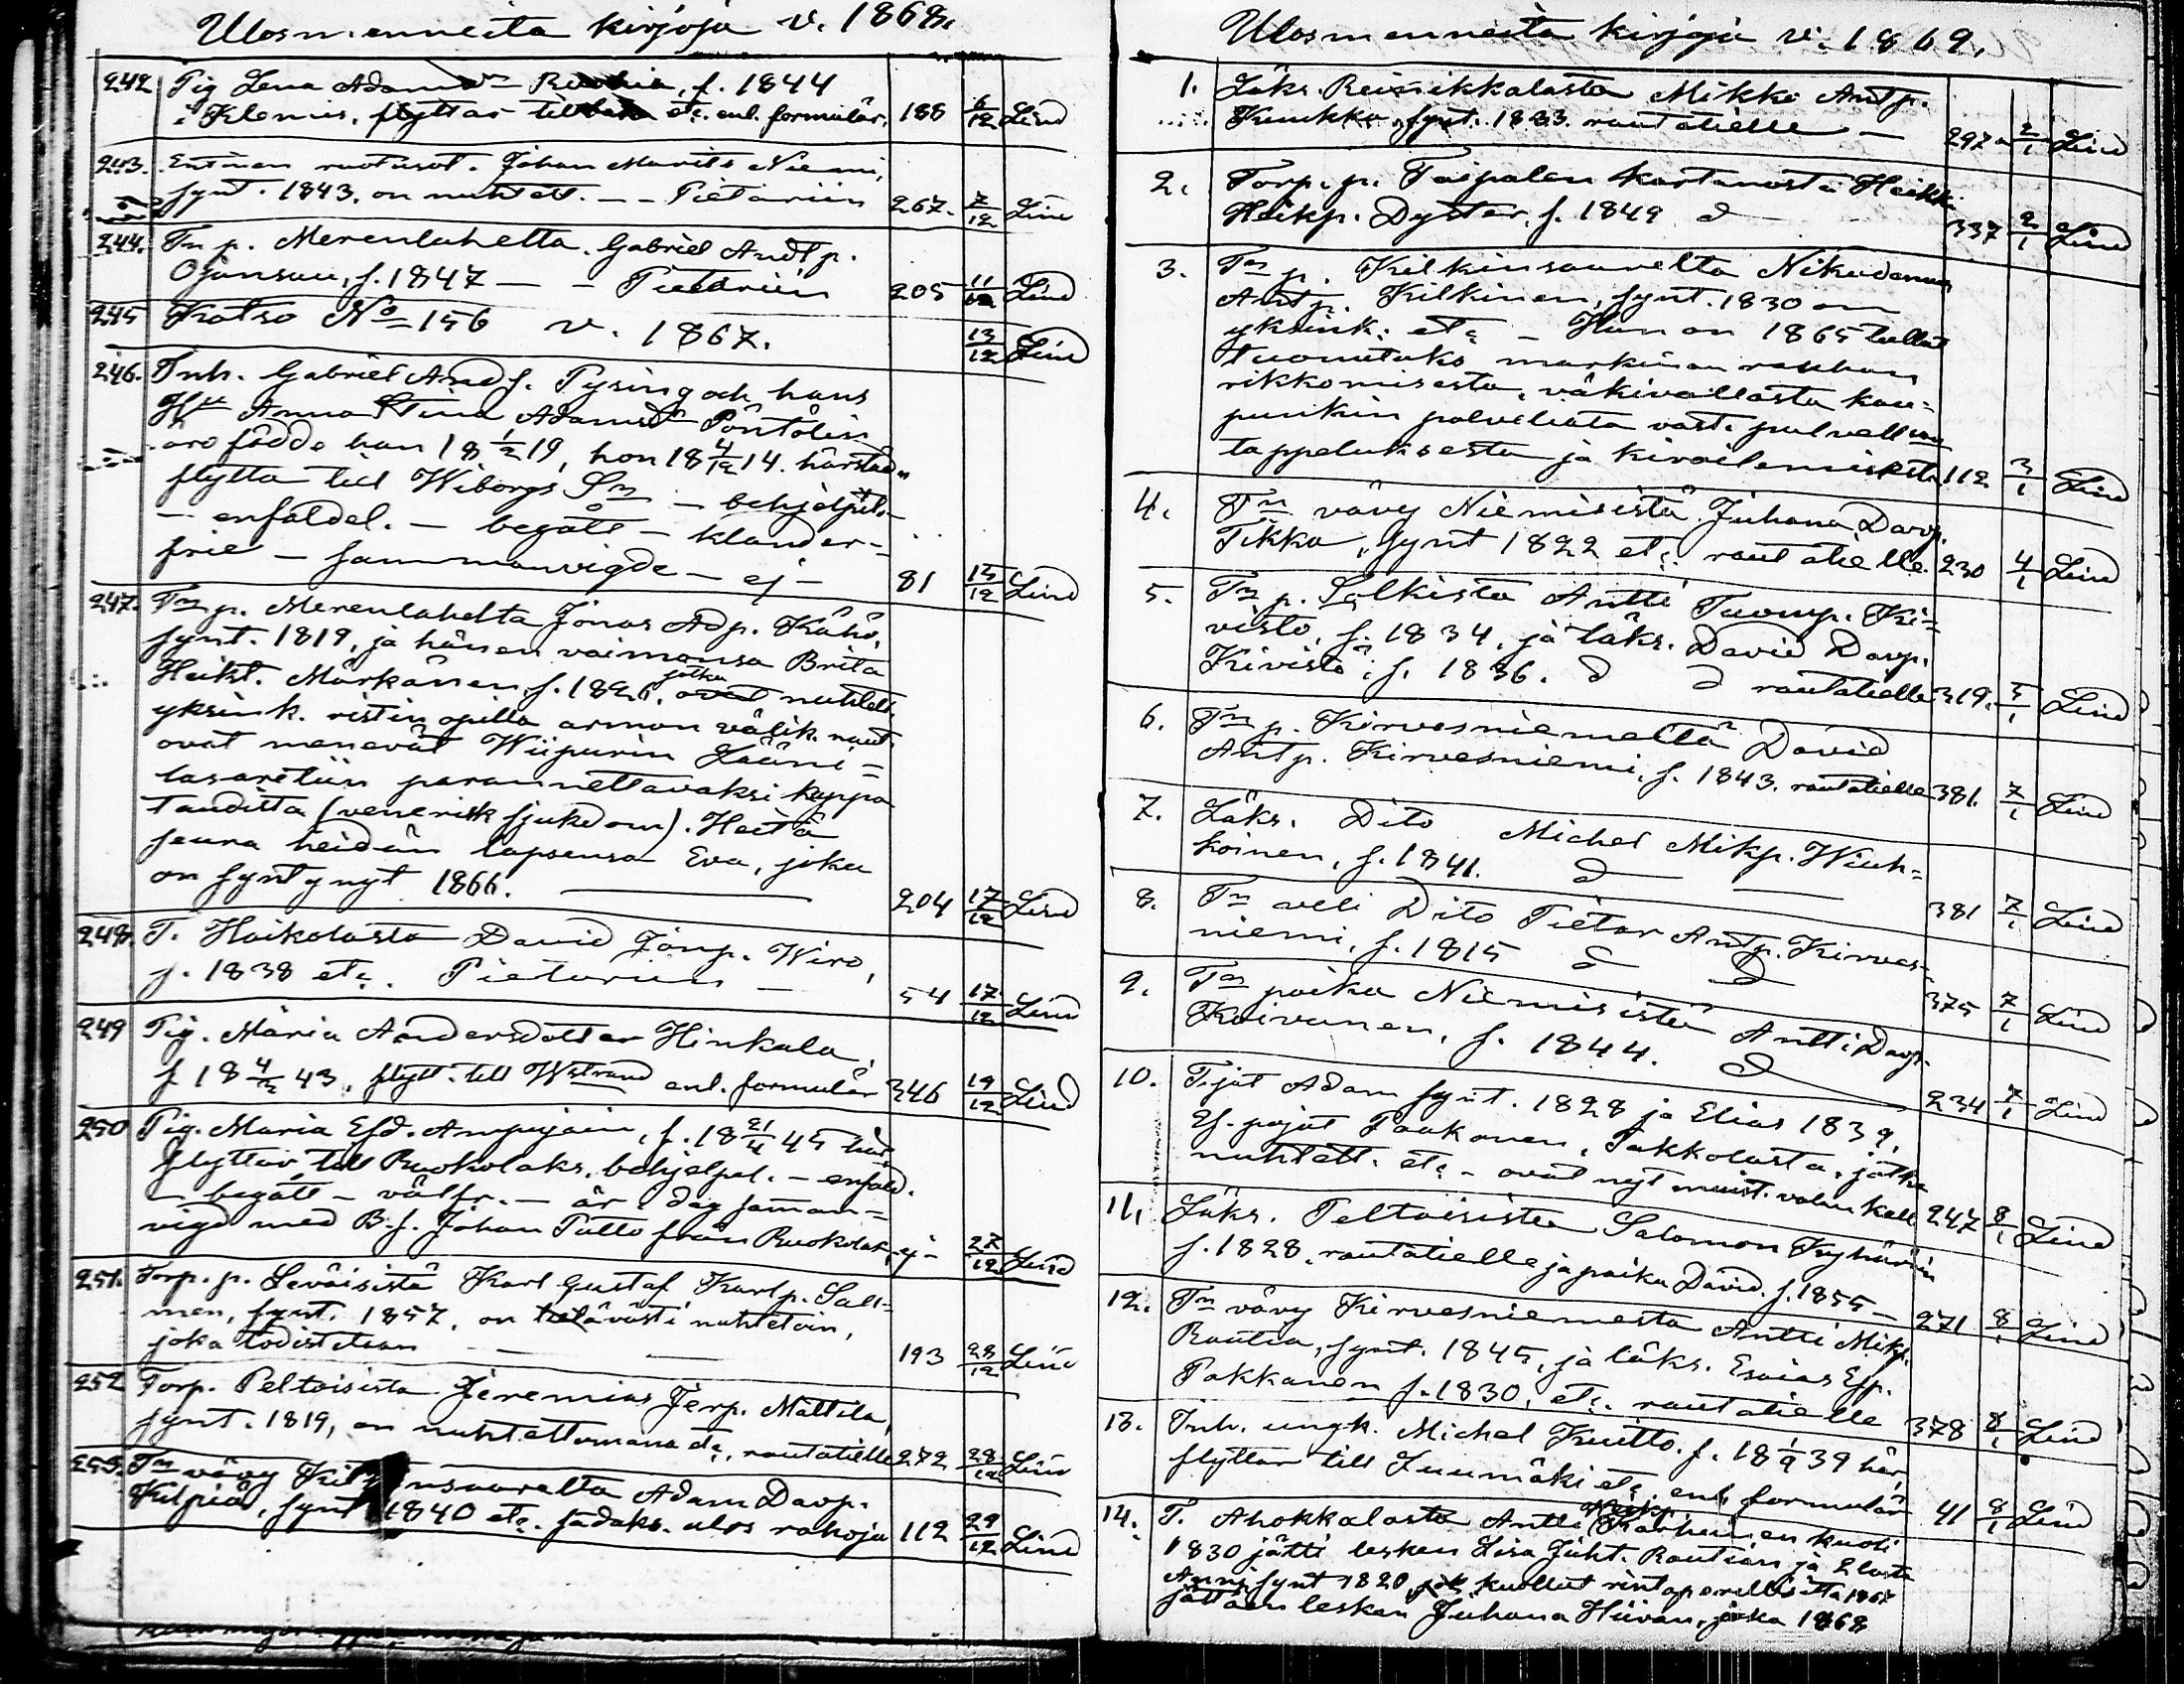 Ulosmenneitä kirjoja v. 1868.
242 Pig Lena Adamsdr f. 1844
i Klemis, flyttar till etc. enl. formulär, 188 6/12 Lind
243. Entinen ruotusot. Johan Maurits Niemi,
synt. 1843, on nuhtett. - - Pietariin 267. 7/12 Lind
244. Tn p. Merenlahelta Gabriel Andp.
Ojansuu, f. 1847 - - Pietariin 205 11/12 Lind
245 Katso No 156 v. 1867. 13/12 Lind
246. Inh. Gabriel Andf. Pysing och hans
Hu Anna Stina Adamsdr Pöntölin
äro födde han 18 1/2 19, hon 18 4/12 14. härstäd.
flytta till Wiborgs Sn - behjelpl. -
- enfaldel. - begått - klander-
frie - sammanvigde - ej - 81 15/12 Lind
247. Tn p. Merenlahelta Jonas Adp. Kähö,
synt. 1819, ja hänen vaimonsa Brita
Heikt. Märkänen, f. 1826, jotka nuhtett.
yksink. ristin opilla armon välik. naut.
ovat menevät Wiipurin Lääni=
lasaretiin parannettavaksi kuppa
taudilta (venerisk sjukdom). Heitä
seuraa heidän lapsensa Eva, joka
on syntynyt 1866. 204 17/12 Lind
248. T. Haikolasta David Jönp. Wiro,
f. 1838 etc. Pietariin - 54 17/12 Lind
249 Pig. Maria Andersdotter Hinkala,
f. 18 4/2 43, flytt. till Wstrand enl. formulär 346 19/12 Lind
250 Pig. Maria Esd. Ampujain, f. 18 21/4 45 här
flyttar till Ruokolaks. behjelpel. - enfald.
- begått - välfr. - är i dag samman=
vigd med B.s. Johan Putto från Ruokolaks, ej - 27/12 Lind
251. Torp. p. Leväisistä Karl Gustaf Karlp. Sal=
men, synt. 1857, on nuhtetoin,
joka todistetaan - - 193 28/12 Lind
252 Torp. Peltoisista Jeremias Jerp. Mattila,
synt. 1819, on nuhtettomana etc., rautatielle 272 28/12 Lind
253. Tn vävy Kilkinsaarelta Adam Davp.
Kilpiä, synt 1840 etc. sadaks. ulos rahoja 112 29/12 Lind
Ulosmenneitä kirjoja v. 1869.
1. Läks. Reinikkalasta Mikko Antp.
Kuukka, synt. 1833. rautatielle - 297 2/1 Lind
2. Torp. p. Taipalen kartanosta Heikki
Heikp. Dyster, f. 1849 d 337 2/1 Lind
3. Tn p. Kilkinsaarelta Nikodemus
Antp. Kilkinen, synt. 1830 on
yksink. etc - Hän on 1865 tullut
tuomituks markinan rauhan
rikkomisesta, väkivallasta kau=
punkin palveliata vast. palvell
tappeluksesta ja kiroilemisesta 112 3/1 Lind
4. Tn vävy Niemisistä Juhana Davp.
Tikka, synt 1822 etc. rautatielle. 230 4/1 Lind
5. Tn p. Solkista Antti Tuomp. Ki=
vistö, f. 1834, ja läks. David Davp.
Kivistö, f. 1836. d d rautatielle 319. 5/1 Lind
6. Tn p. Kirvesniemeltä David
Antp. Kirvesniemi, f. 1843. rautatielle 381. 7/1 Lind
7. Läks. Dito Michel Mikp. Wuh=
koinen, f. 1841. d 381 7/1 Lind
8. Tn veli Dito Pietar Antp. Kirves=
niemi, f. 1815 d d 375 7/1 Lind
9. Tn poika Niemisistä Antti Davp.
Koivunen, f. 1844. d 234 7/1 Lind
10. T.jat Adam synt. 1828 ja Elias 1839,
Es. pojat Paakonen, Pakkolasta, jotka
nuhtett. etc - ovat nyt muist. valan kall 247 8/1 Lind
11. Läks. Peltoisista Salomon Kyhäräin
f. 1828, rautatielle ja poika David f. 1855 - 271 8/1 Lind
12. Tn vävy Kirvesniemestä Antti Mikp.
Rautia, synt. 1845, ja läks. Esaias Esp.
Pakkanen f. 1830, etc. rautatielle 378 8/1 Lind
13. Inh. ungk. Michel Kuitto, f. 18 1/9 39 här,
flyttar till Luumäki etc. enl. formulär 41 8/1 Lind
14. T. Ahokkalasta Antti Karhunen kuoli
1830 jätti lesken Lisa Juht. Rautian ja 2 lasta
Anni synt 1820, kuollut rintaperillisittä 1867
jättäen lesken Juhana Hiivan, joka 1868